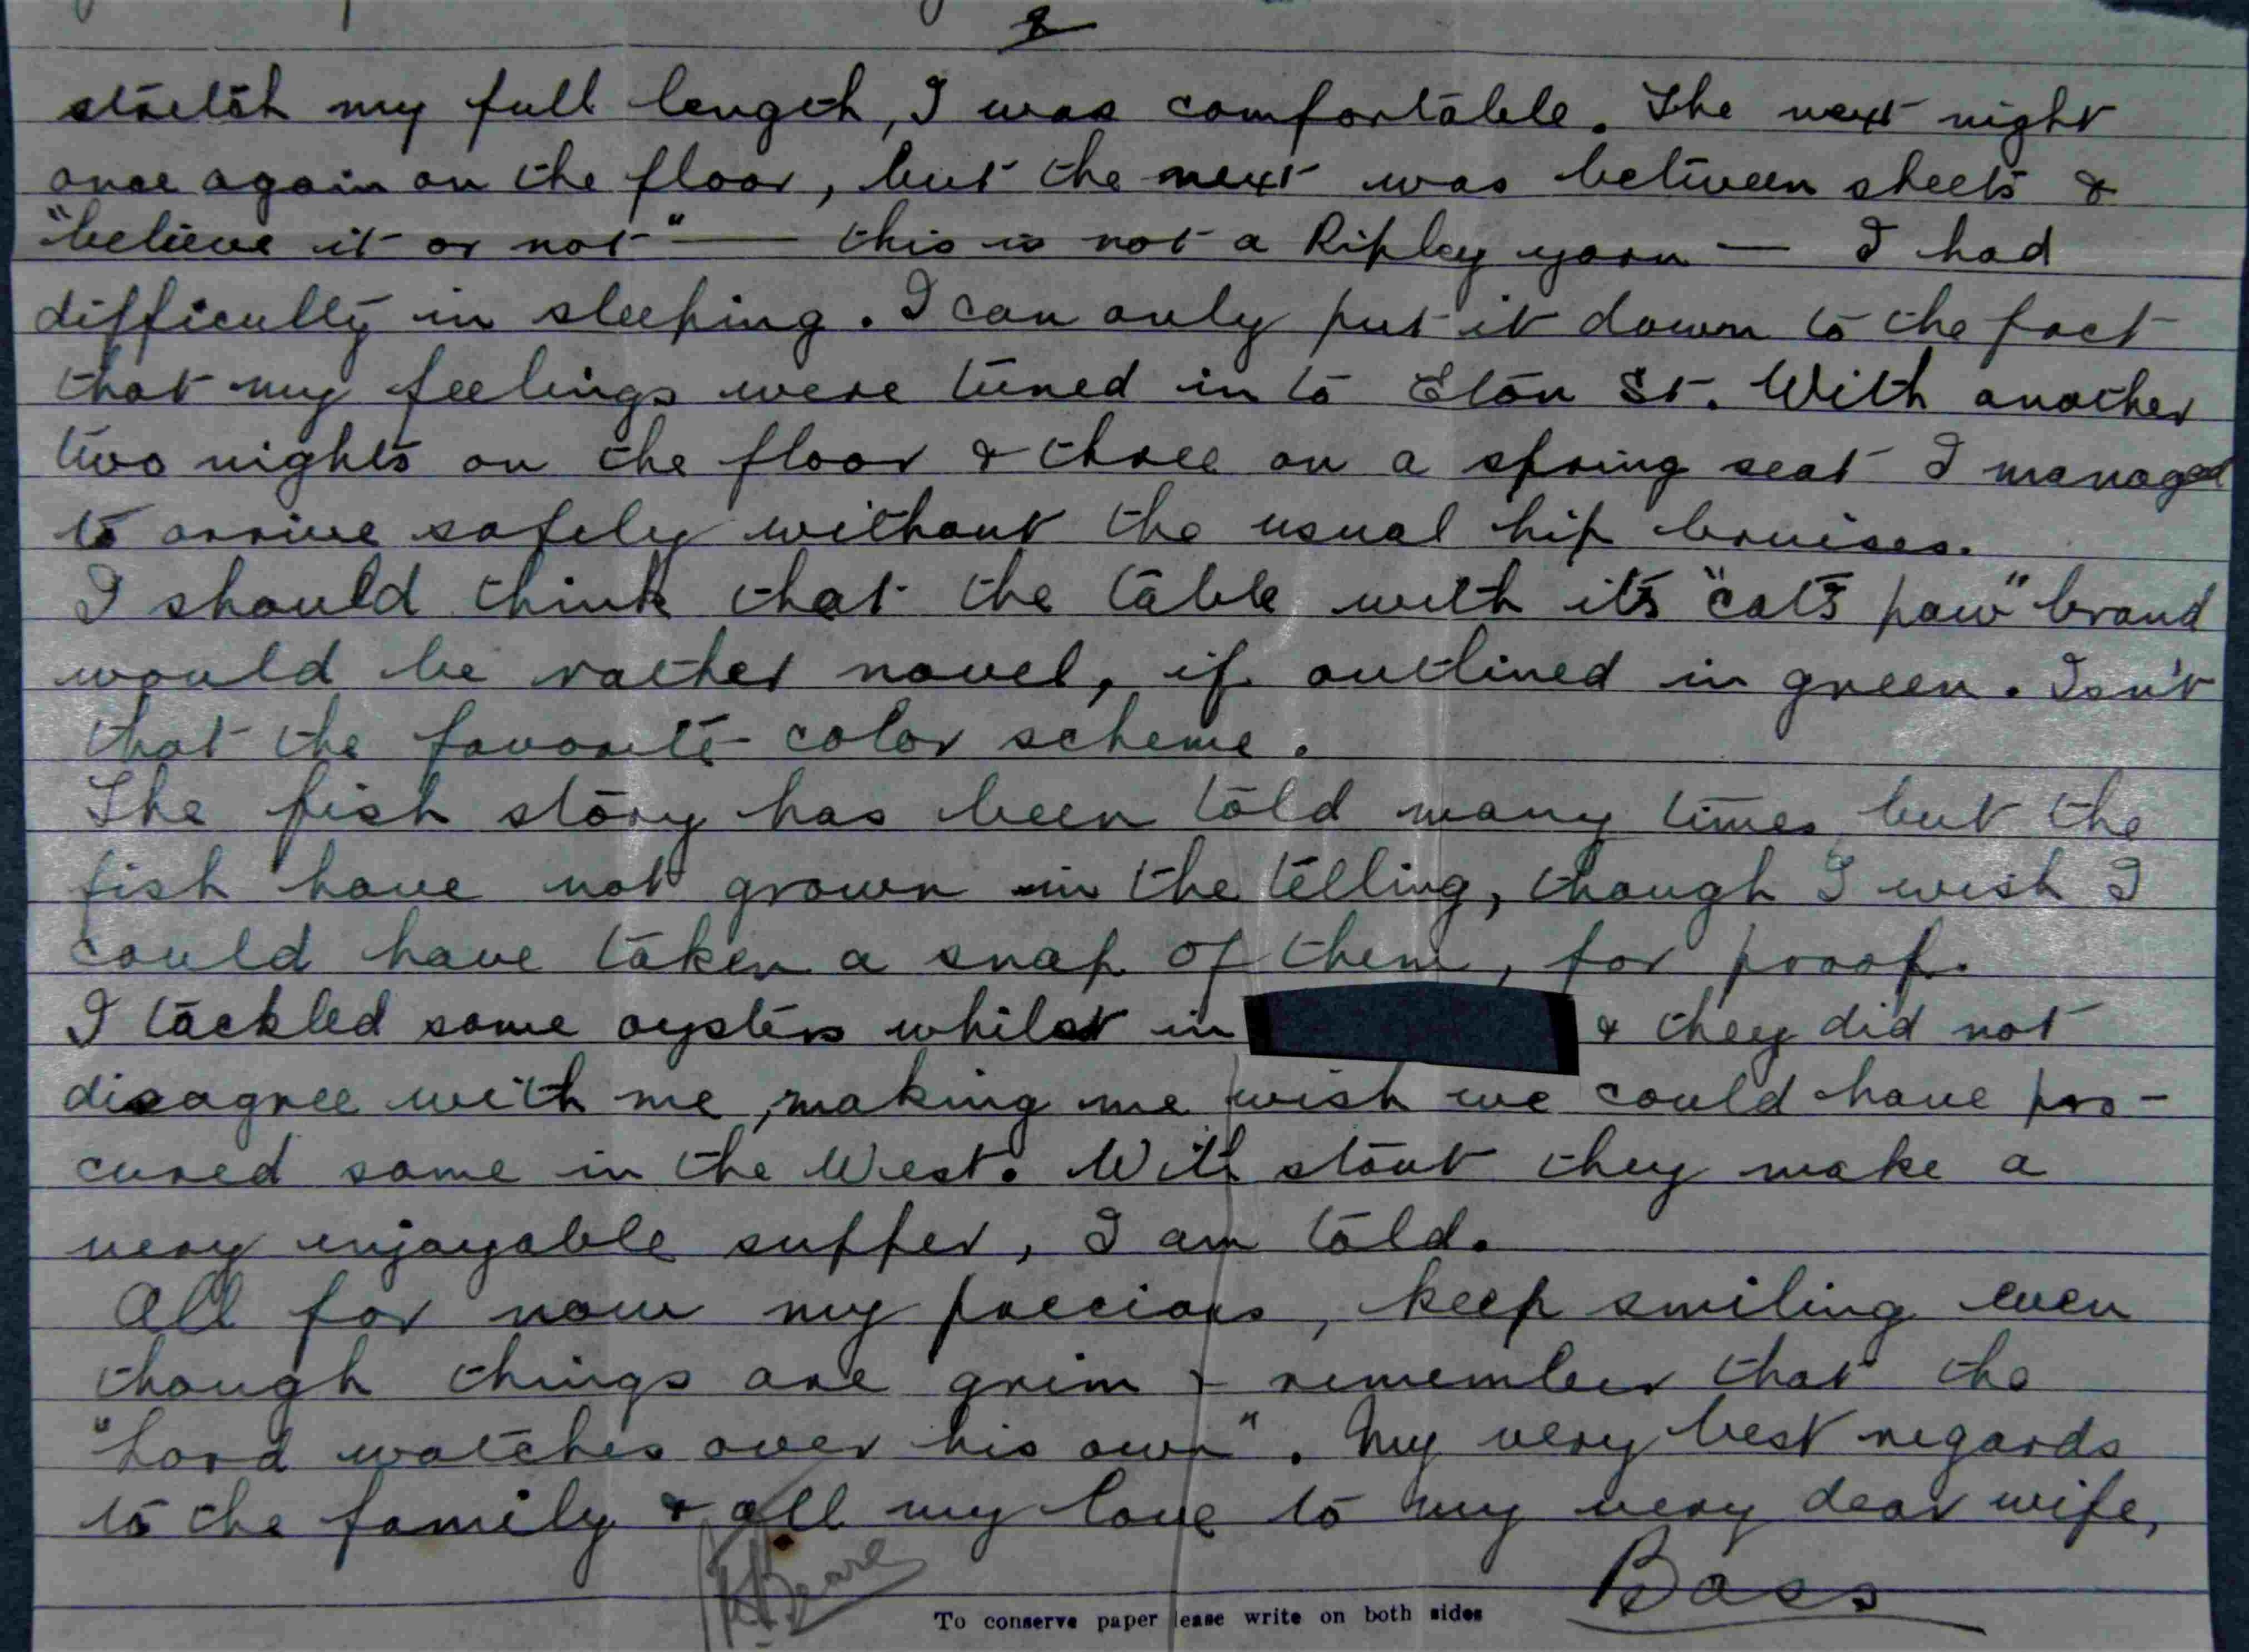 2
stretch my full length, I was comfortable. The next night
once again on the floor, but the next was between sheets &
"believe it or not" — this is not a Ripley yarn — I had
difficulty in sleeping. I can only put it down to the fact
that my feelings were tuned in to Eton St. With another
two nights on the floor & three on a spring seat I managed
to arrive safely without the usual hip bruises.
I should think that the table with its "cat's paw" brand
would be rather novel, if outlined in green. Isn't
that the favorite color scheme.
The fish story has been told many times but the
fish have not grown in the telling, though I wish I
could have taken a snap of them, for proof.
I tackled some oysters whilst in & they did not
disagree with me, making me wish we could have pro-
cured some in the West. With stout they make a
very enjoyable supper, I am told.
All for now my precious, keep smiling even
though things are grim & remember that the
"Lord watches over his own". My very best regards
to the family & all my love to my very dear wife,
Boss
To conserve paper lease write on both sides